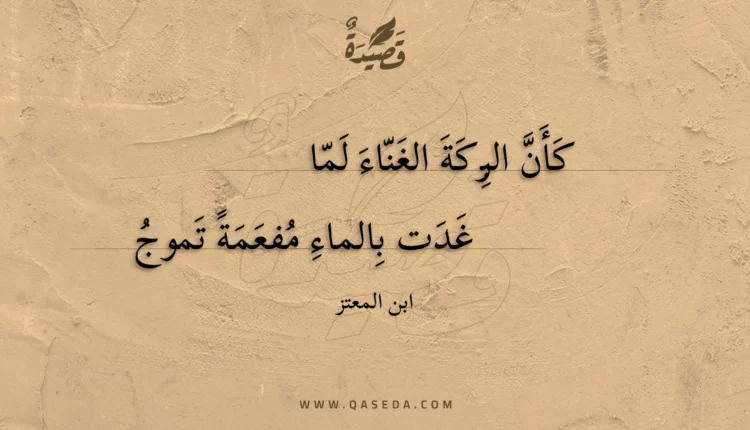 قَصِيدَةٌ
كَأَنَّ الرِكَةَ الغَنّاءَ لَمّا
غَدَت بِالماءِ مُفعَمَةً تَموجُ
ابن المعتز
WWW.QASEDA.COM